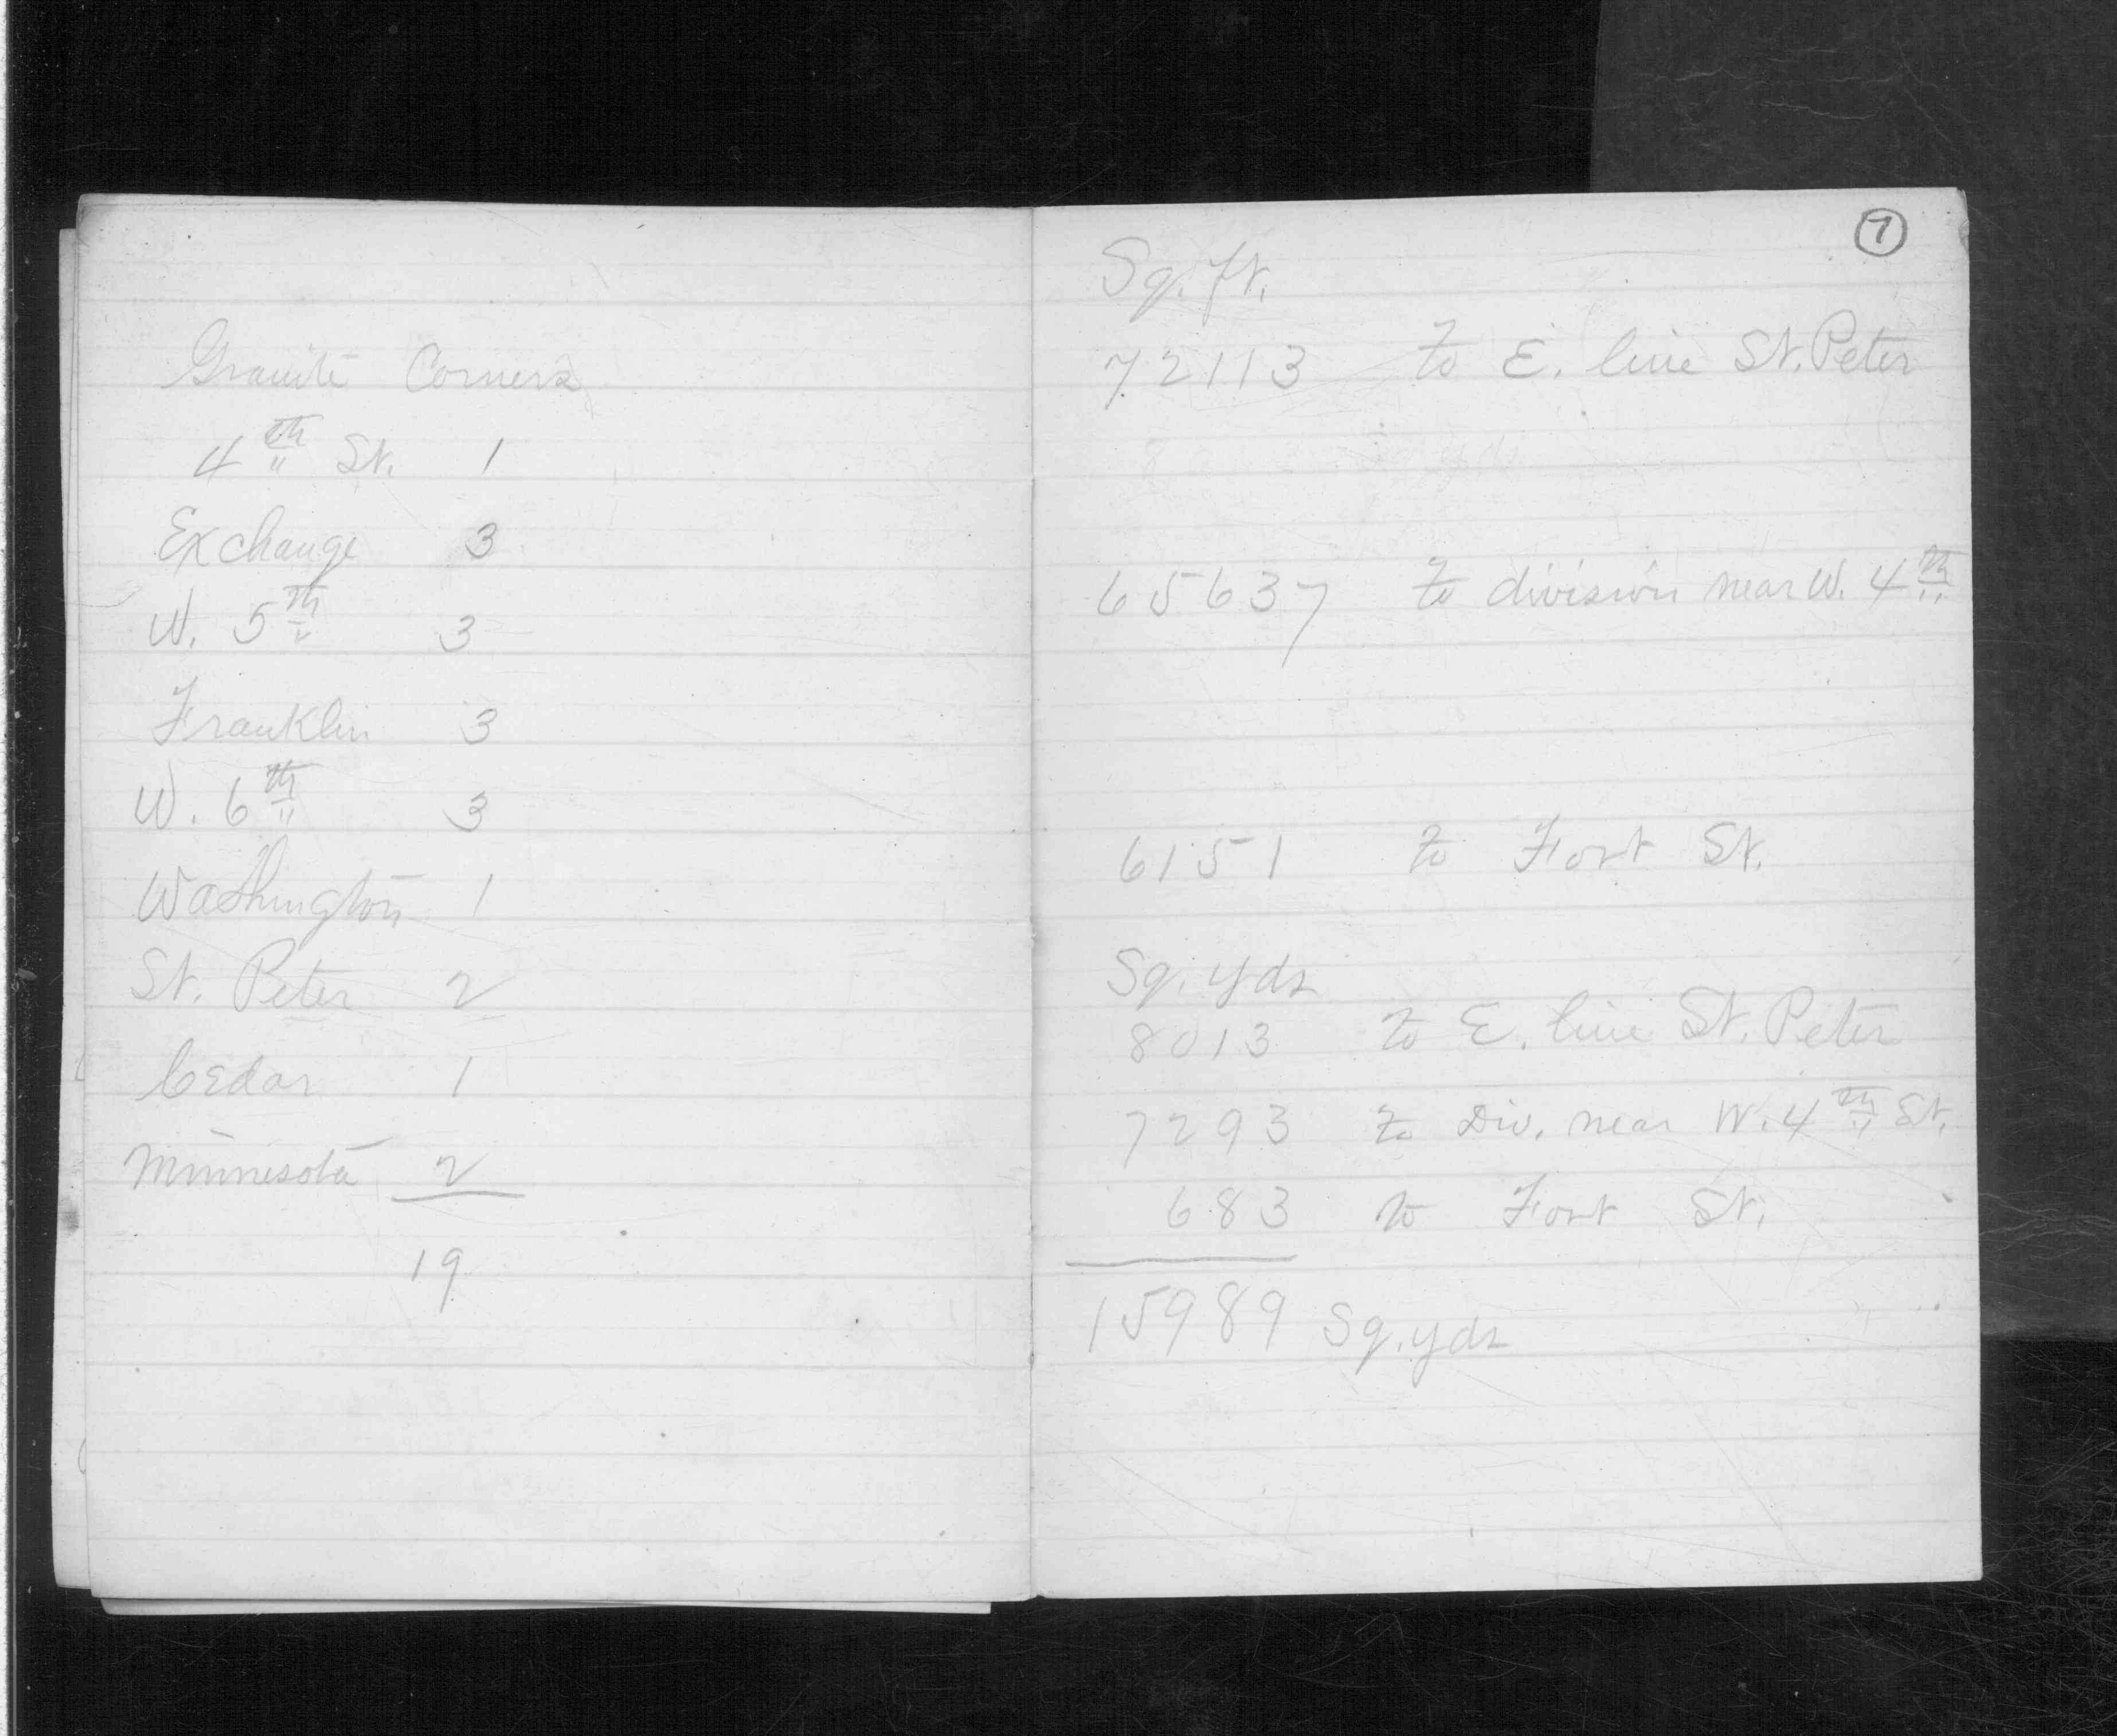 Granite Corners
4th St. 1
Exchange 3
W. 5th 3
Franklin 3
W. 6th 3
Washington 1
St. Peter 2
Cedar 1
Minnesota 2
19
7
Sq. ft.
72113 to E. line St. Peter
65637 to division near W. 4th
6151 to Fort St.
Sq. yds
8013 to E. line St. Peter
7293 to Div. near W. 4th St.
683 to Fort St.
15989 Sq. yds